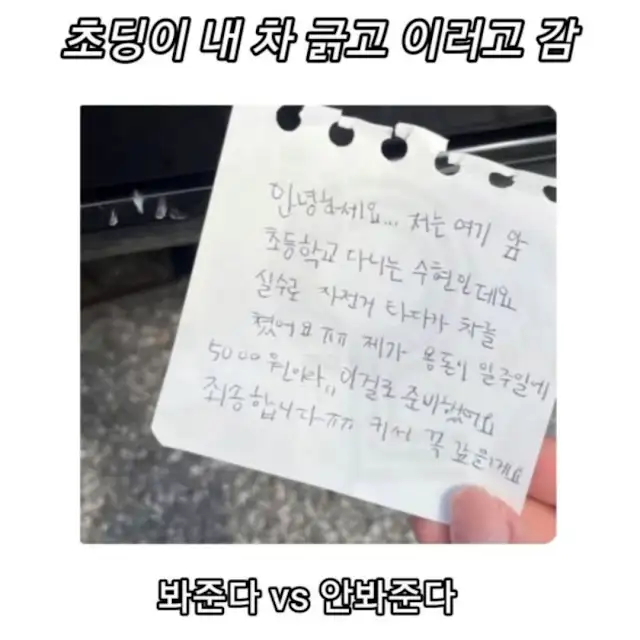 초딩이 내 차 긁고 이러고 감
안녕하세요... 저는 여기 앞
초등학교 다니는 수현인데요
실수로 자전거 타다가 차를
쳤어요ㅠㅠ 제가 용돈이 일주일에
5000원이라,, 이걸로 준비했어요
죄송합니다ㅠㅠ 커서 꼭 갚을게요
봐준다 vs 안봐준다